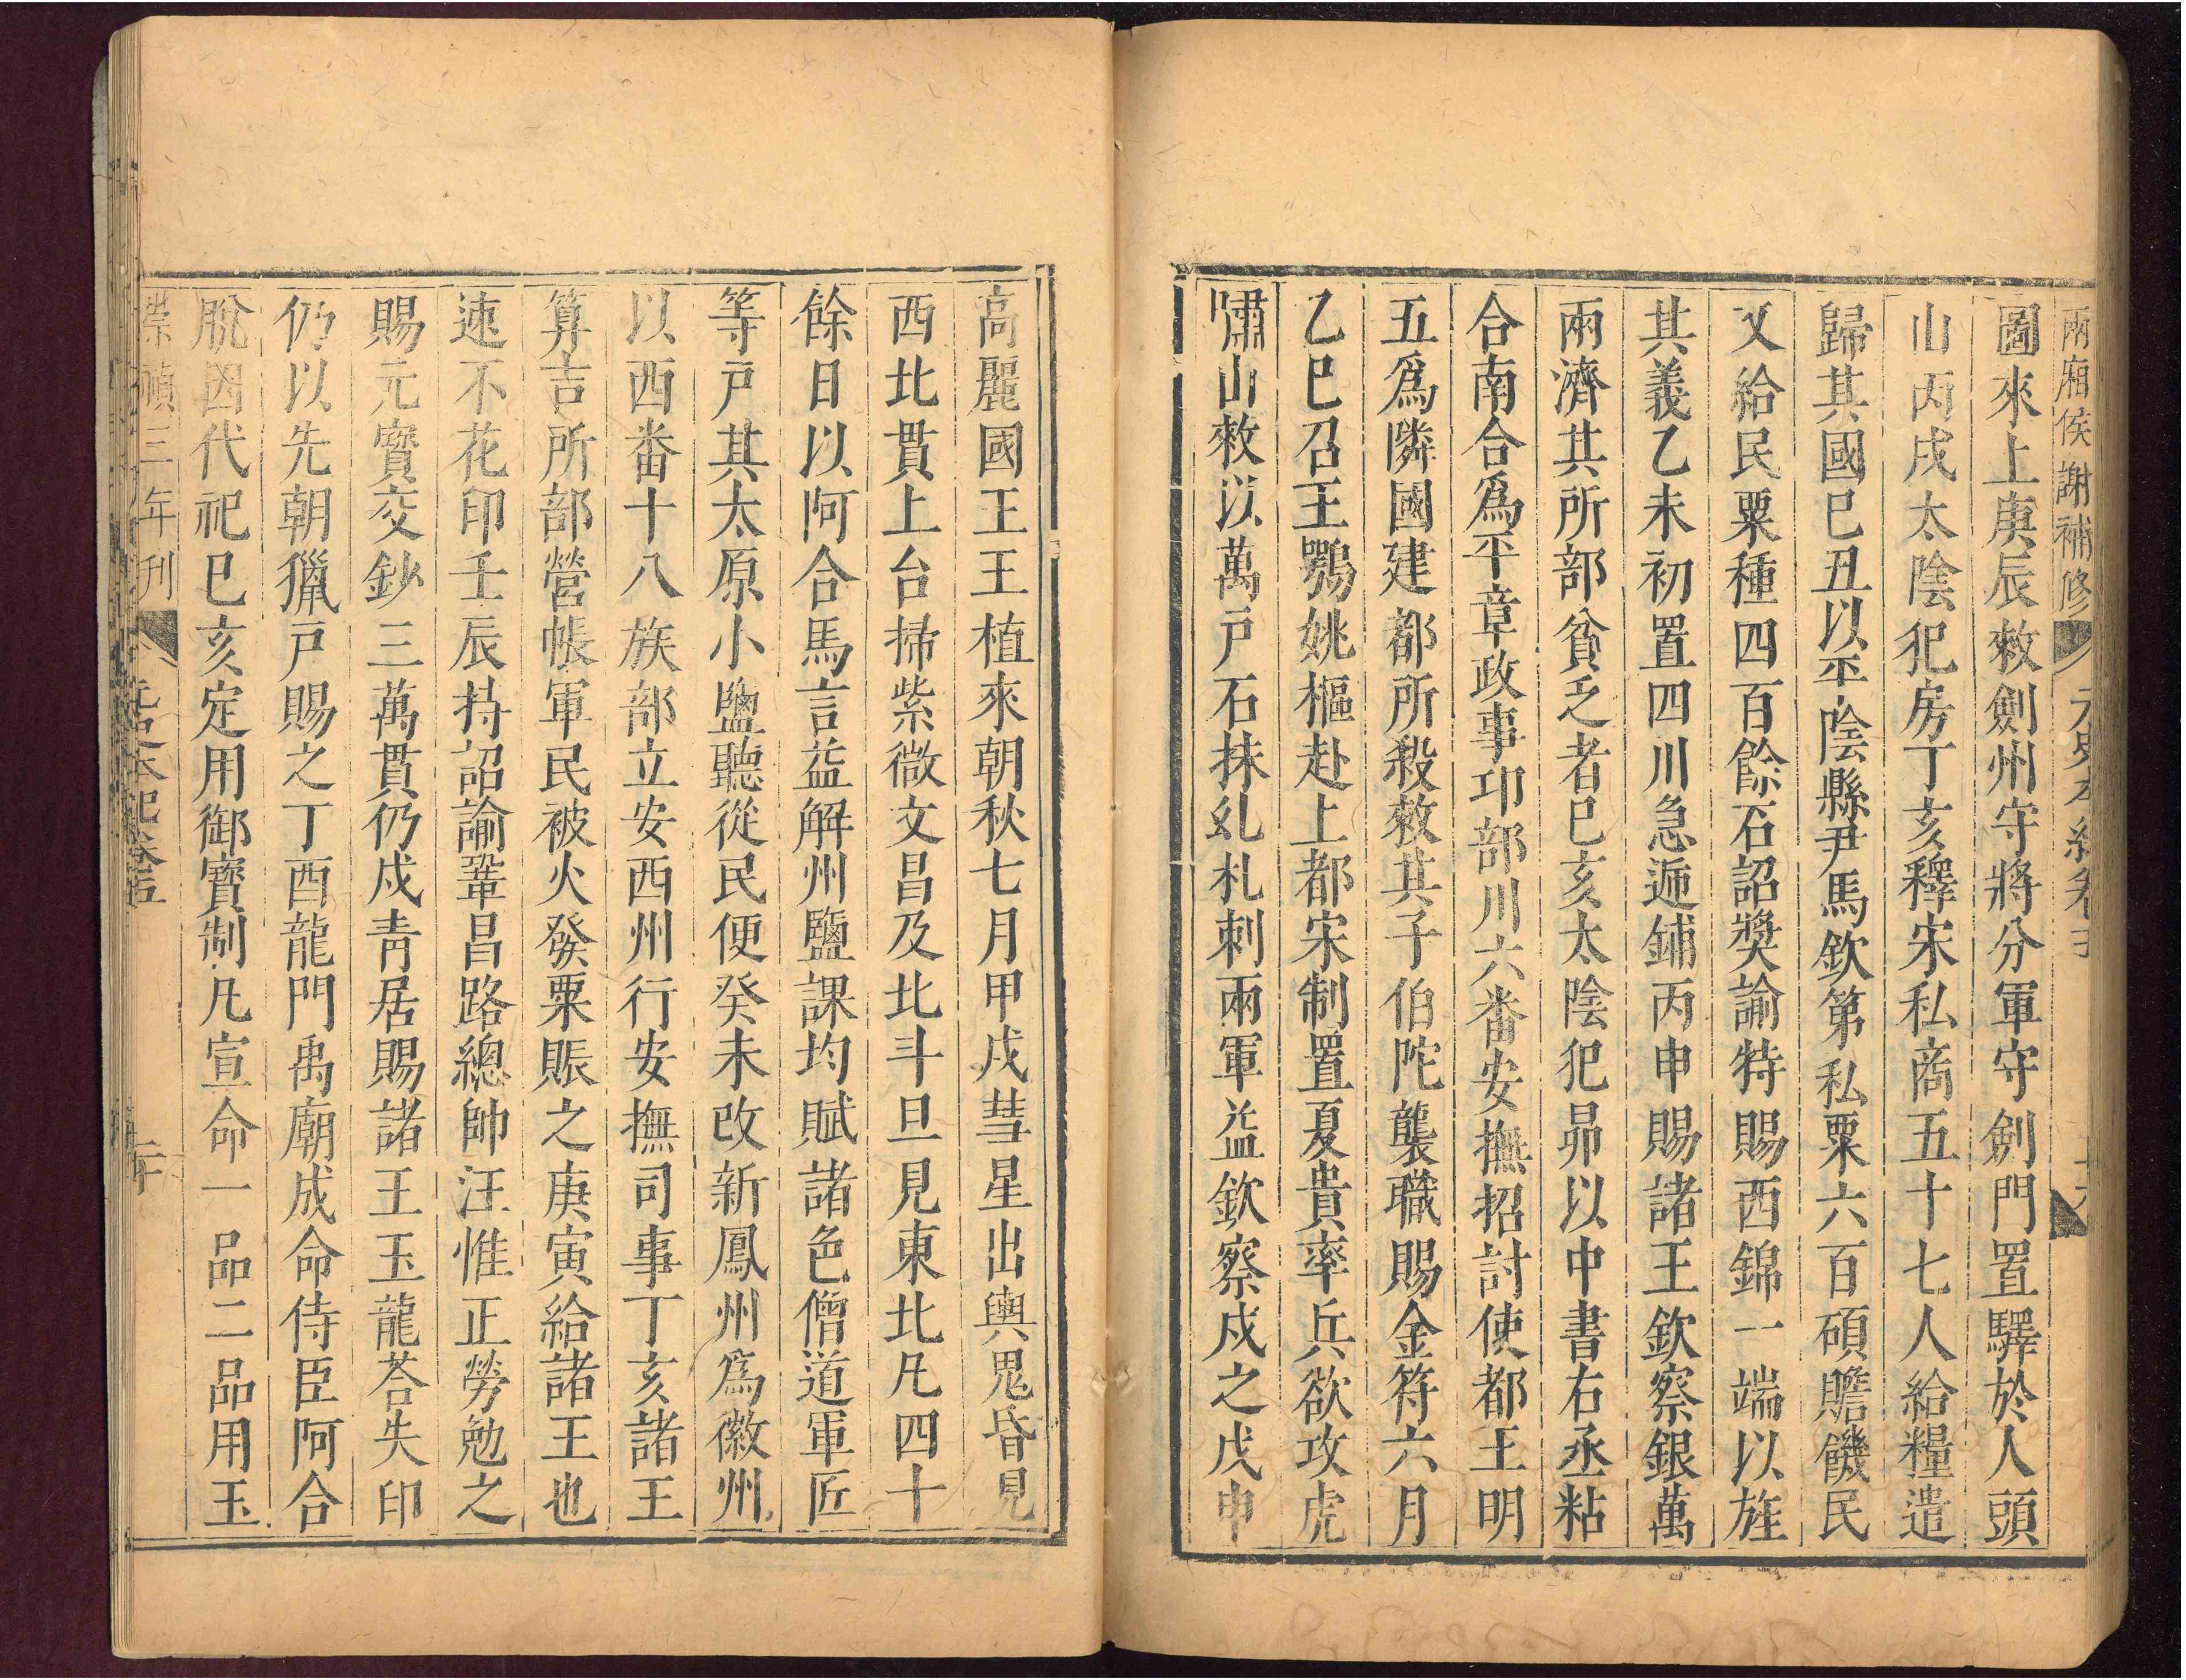 兩廂侯謝補修 元史本紀卷五
圖來上庚辰敕劍州守將分軍守劍門置驛於人頭
山丙戌太陰犯房丁亥釋宋私商五十七人給糧遣
歸其國巳丑以平陰縣尹馬欽第私粟六百碩贍饑民
又給民粟種四百餘石詔獎諭特賜西錦一端以旌
其義乙未初置四川急逓鋪丙申賜諸王欽察銀萬
兩濟其所部貧乏者巳亥太陰犯昴以中書右丞粘
合南合爲平章政事邛部川六番安撫招討使都王明
五爲隣國建都所殺敕其子伯陀襲職賜金符六月
乙巳召王鶚姚樞赴上都宋制置夏貴率兵欲攻虎
嘯山敕以萬戸石抹糺札剌兩軍益欽察戍之戊申
高麗國王王植來朝秋七月甲戌彗星出輿鬼昏見
西北貫上台掃紫微文昌及北斗旦見東北凡四十
餘日以阿合馬言益解州鹽課均賦諸色僧道軍匠
等戸其太原小鹽聽從民便癸未改新鳳州爲徽州
以西番十八族部立安西州行安撫司事丁亥諸王
算吉所部營帳軍民被火發粟賑之庚寅給諸王也
速不花印壬辰持詔諭鞏昌路總帥汪惟正勞勉之
賜元寳交鈔三萬貫仍戍青居賜諸王玉龍荅失印
仍以先朝獵戸賜之丁酉龍門禹廟成命侍臣阿合
脫因代祀巳亥定用御寳制凡宣命一品二品用玉
崇禎三年刋 元史本紀卷五